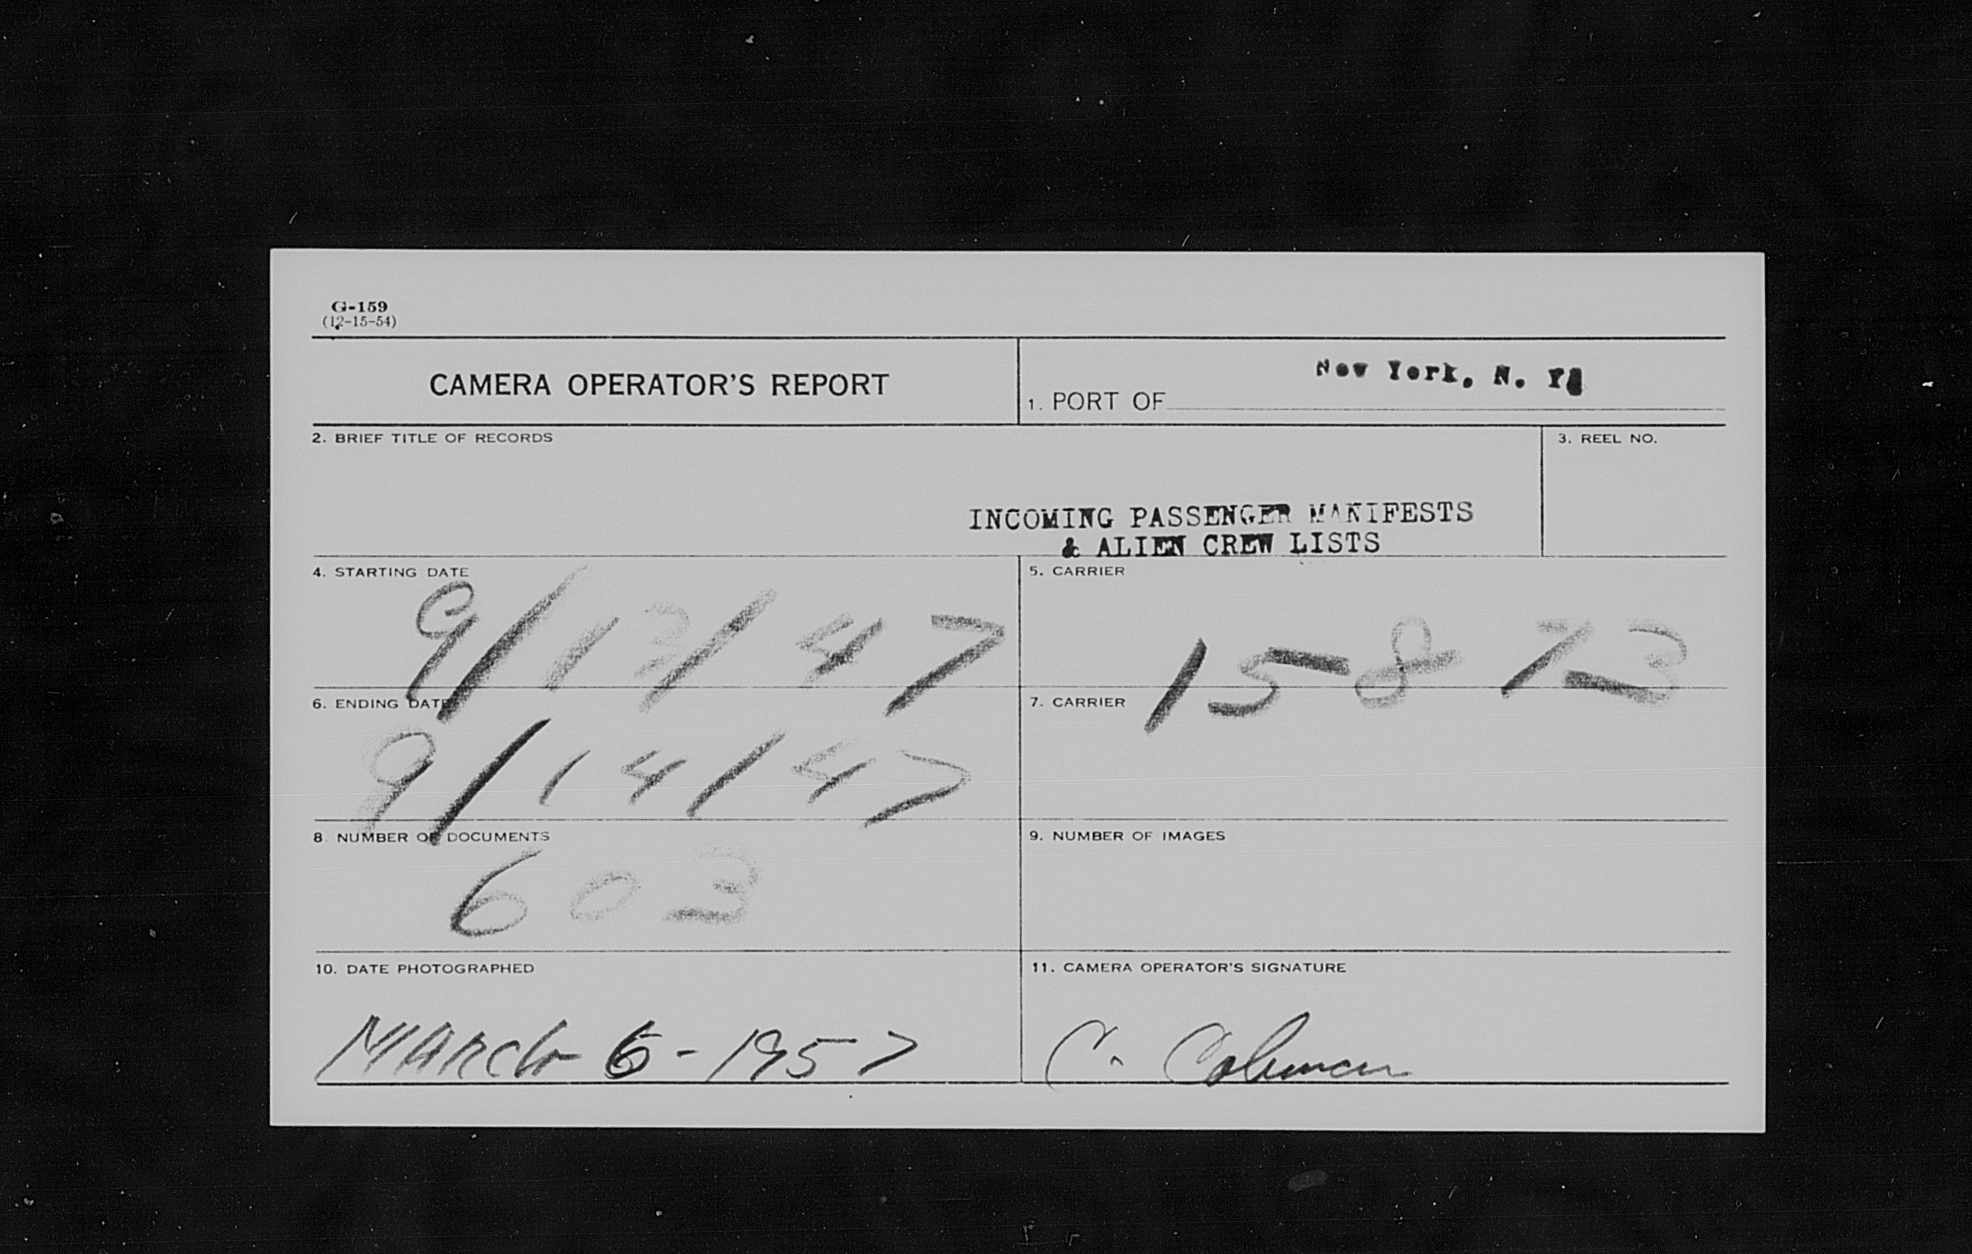 G-159
(12-15-54)
CAMERA OPERATOR'S REPORT
1. PORT OF New York, N. Y.
2. BRIEF TITLE OF RECORDS
3. REEL NO.
INCOMING PASSENGER MANIFESTS
& ALIEN CREW LISTS
4. STARTING DATE
9/13/47
5. CARRIER
15-873
6. ENDING DATE
9/14/47
7. CARRIER
8. NUMBER OF DOCUMENTS
603
9. NUMBER OF IMAGES
10. DATE PHOTOGRAPHED
MARch 6-1957
11. CAMERA OPERATOR'S SIGNATURE
C. Coleman